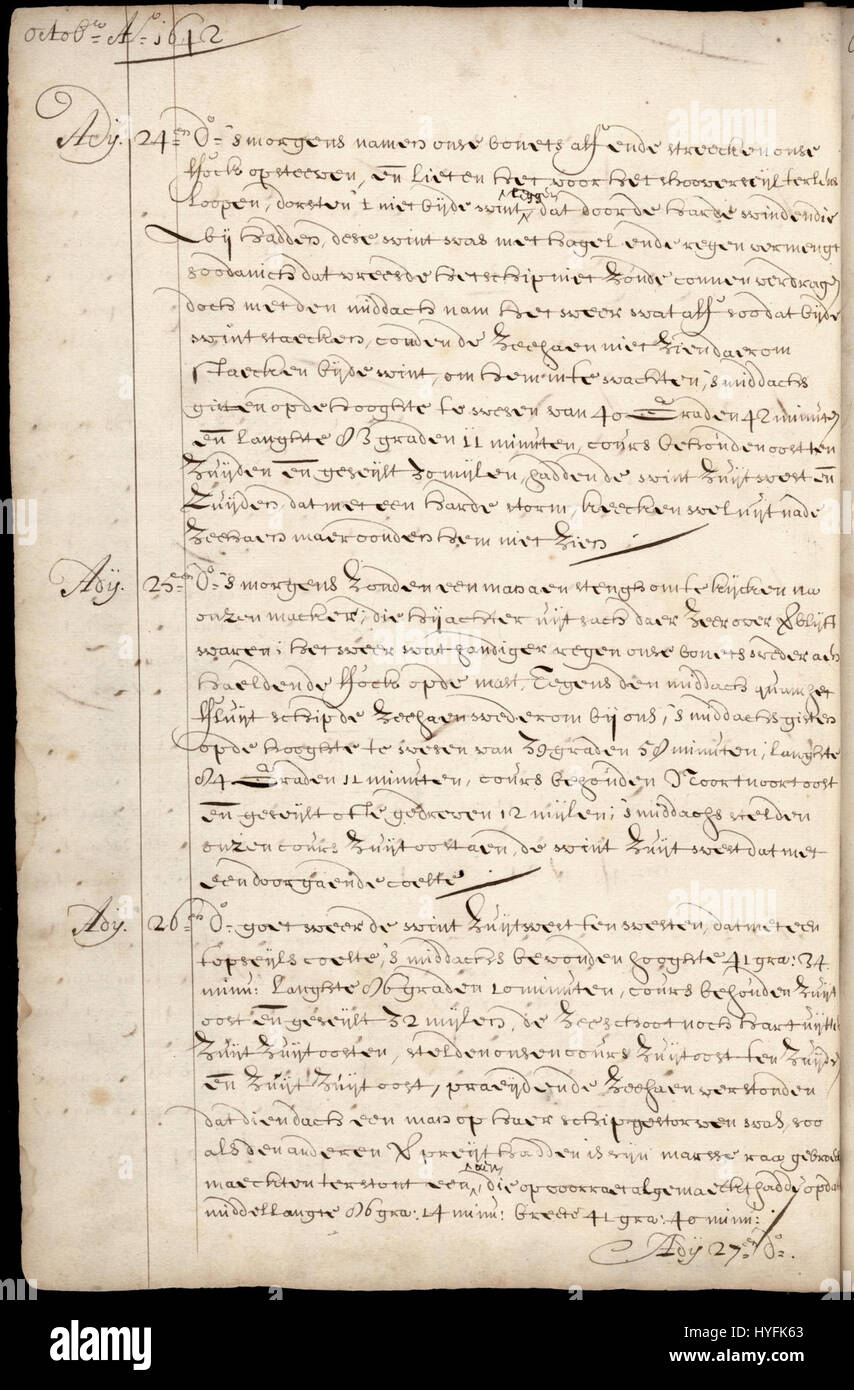 octob:ro A:o 1642
Adij. 24:en D:o 's morgens namen onse bonets aff ende streecken onse
fock op steeven, en lieten het voor het schooverseyl ter lens
loopen, dorsten 't niet bijde wint leggen dat door de harde winden die
wij hadden, dese wint was met hagel ende regen vermengt
soodanich dat vreesde het schip niet zoude connen verdragen
doch met den middach nam het weer wat aff soo dat bijde
wint staecken, conden de Zeehaen niet zien daerom
staecken bijde wint, om hem in te wachten, 's middachs
gisten op de hooghte te wesen van 40 Graden 42 minuten
en langhte 83 graden 11 minuten, cours behouden oost ten
zuijden en geseijlt 30 mijlen, hadden de wint zuijtwest en
zuijden dat met een harde storm, keecken wel uijt na de
Zeehaen maer conden hem niet zien
Adij. 25:en D:o 's morgens zonden een man aen stengh om te kijcken na
onzen macker, die hij achter uijt sach daer zeer over verblijt
waren; het weer wat handiger regen onse bonets weder aen
haelden de fock op de mast, Tegens den middach quam het
fluijt schip de Zeehaen wederom bij ons, 's middachs gisten
op de hooghte te wesen van 39 graden 58 minuten, langhte
84 Graden 11 minuten, cours behouden Noort noort oost
en geseijlt ofte gedreven 12 mijlen, 's middachs stelden
onzen cours zuijt oost aen, de wint zuijt west dat met
een doorgaende coelte
Adij. 26:en D:o goet weer de wint zuijtwest ten westen, dat met een
topseijls coelte, 's middachs bevonden hooghte 41 gra: 34
minu: langhte 86 graden 10 minuten, cours behouden zuijt
oost en geseijlt 32 mijlen, de Zee schoot noch hart uijtte
zuijt zuijt oosten, stelden onsen cours zuijt oost ten zuijden
en zuijt zuijt oost, praeijden de Zeehaen verstonden
dat dien dach een man op haer schip gestorven was, soo
als den anderen gepreijt hadden is zijn marse raa gebroken
maeckten terstont een aen, die op voorraet al gemaeckt hadden op de
middel langte 86 gra: 14 minu: breete 41 gra: 40 minu:
Adij 27:en D:o.
alamy
Image ID: HYFK63
www.alamy.com